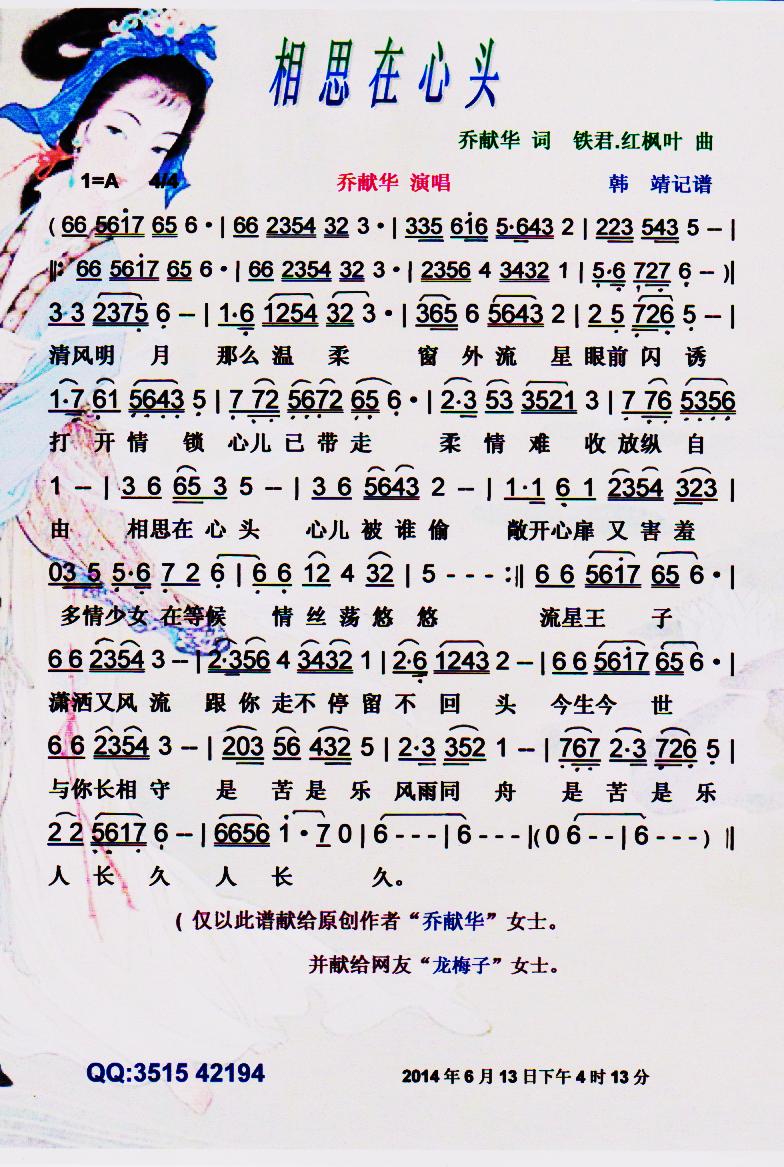 相思在心头
乔献华 词 铁君.红枫叶 曲
1=A 4/4 乔献华 演唱 韩 靖记谱
( 66 5617 65 6 · | 66 2354 32 3 · | 335 616 5·643 2 | 223 543 5 – |
‖: 66 5617 65 6 · | 66 2354 32 3 · | 2356 4 3432 1 | 5·6 727 6 – )|
3 3 2375 6 – | 1·6 1254 32 3 · | 365 6 5643 2 | 2 5 726 5 – |
清风明 月 那么 温 柔 窗 外 流 星 眼前 闪 诱
1·7 61 5643 5 | 7 72 5672 65 6 · | 2·3 53 3521 3 | 7 76 5356
打 开 情 锁 心儿 已 带 走 柔 情 难 收 放纵 自
1 – | 3 6 65 3 5 – | 3 6 5643 2 – | 1·1 6 1 2354 323 |
由 相思在 心 头 心儿 被 谁 偷 敞开心扉 又 害 羞
03 5 5·6 7 2 6 | 6 6 12 4 32 | 5 - - - :‖ 6 6 5617 65 6 · |
多情少女 在等候 情 丝 荡 悠 悠 流星王 子
6 6 2354 3 – | 2·356 4 3432 1 | 2·6 1243 2 – | 6 6 5617 65 6 · |
潇洒又风 流 跟 你 走不 停 留 不 回 头 今生今 世
6 6 2354 3 – | 203 56 432 5 | 2·3 352 1 – | 767 2·3 726 5 |
与你长相 守 是 苦 是 乐 风雨同 舟 是 苦 是 乐
2 2 5617 6 – | 6656 1 · 7 0 | 6 - - - | 6 - - -|( 0 6 - - | 6 - - - ) ‖
人 长 久 人 长 久。
( 仅以此谱献给原创作者“乔献华”女士。
并献给网友“龙梅子”女士。
QQ:3515 42194 2014 年 6 月 13 日下午 4 时 13 分